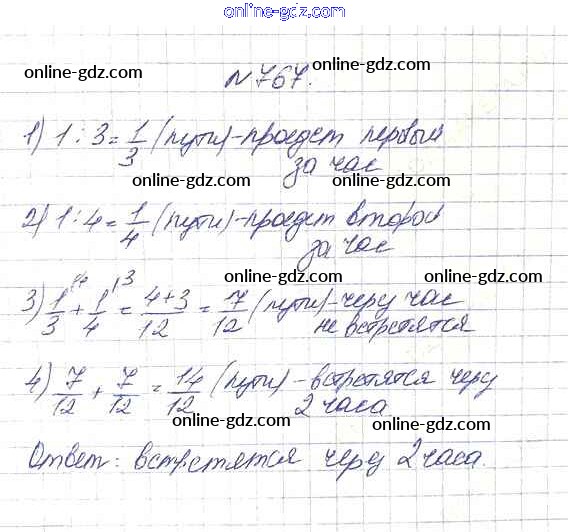 online-gdz.com
online-gdz.com online-gdz.com
№767.
1) 1:3=1/3 (пути)-проедет первый
за час
online-gdz.com online-gdz.com
2) 1:4=1/4 (пути)-проедет второй
за час
online-gdz.com online-gdz.com
3) 1/3 ⁴ + 1/4 ³ = 4+3/12 = 7/12 (пути)-через час
не встретятся
online-gdz.com online-gdz.com
4) 7/12 + 7/12 = 14/12 (пути)-встретятся через
2 часа
online-gdz.com online-gdz.com
Ответ: встретятся через 2 часа.